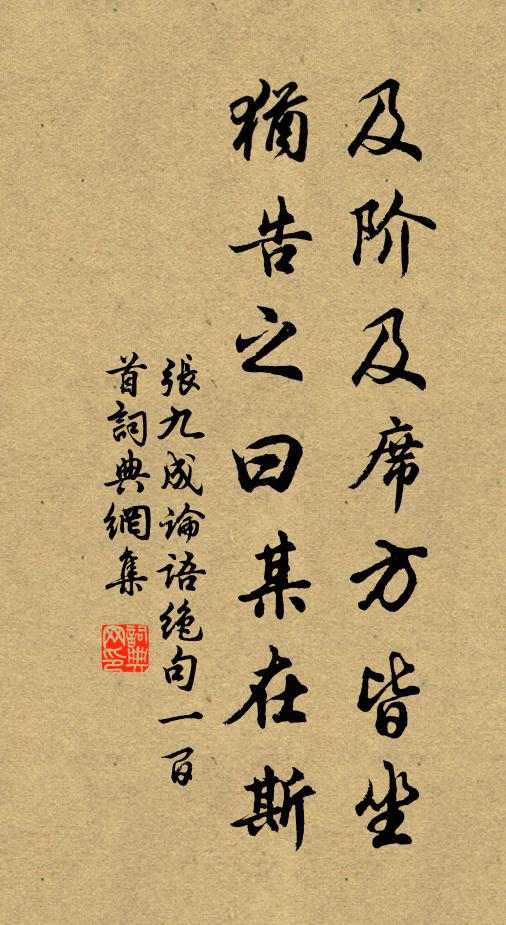 及阶及席方皆坐
猶告之曰某在斯
張九成论语绝句一百
首詞典網集
詞典
网印